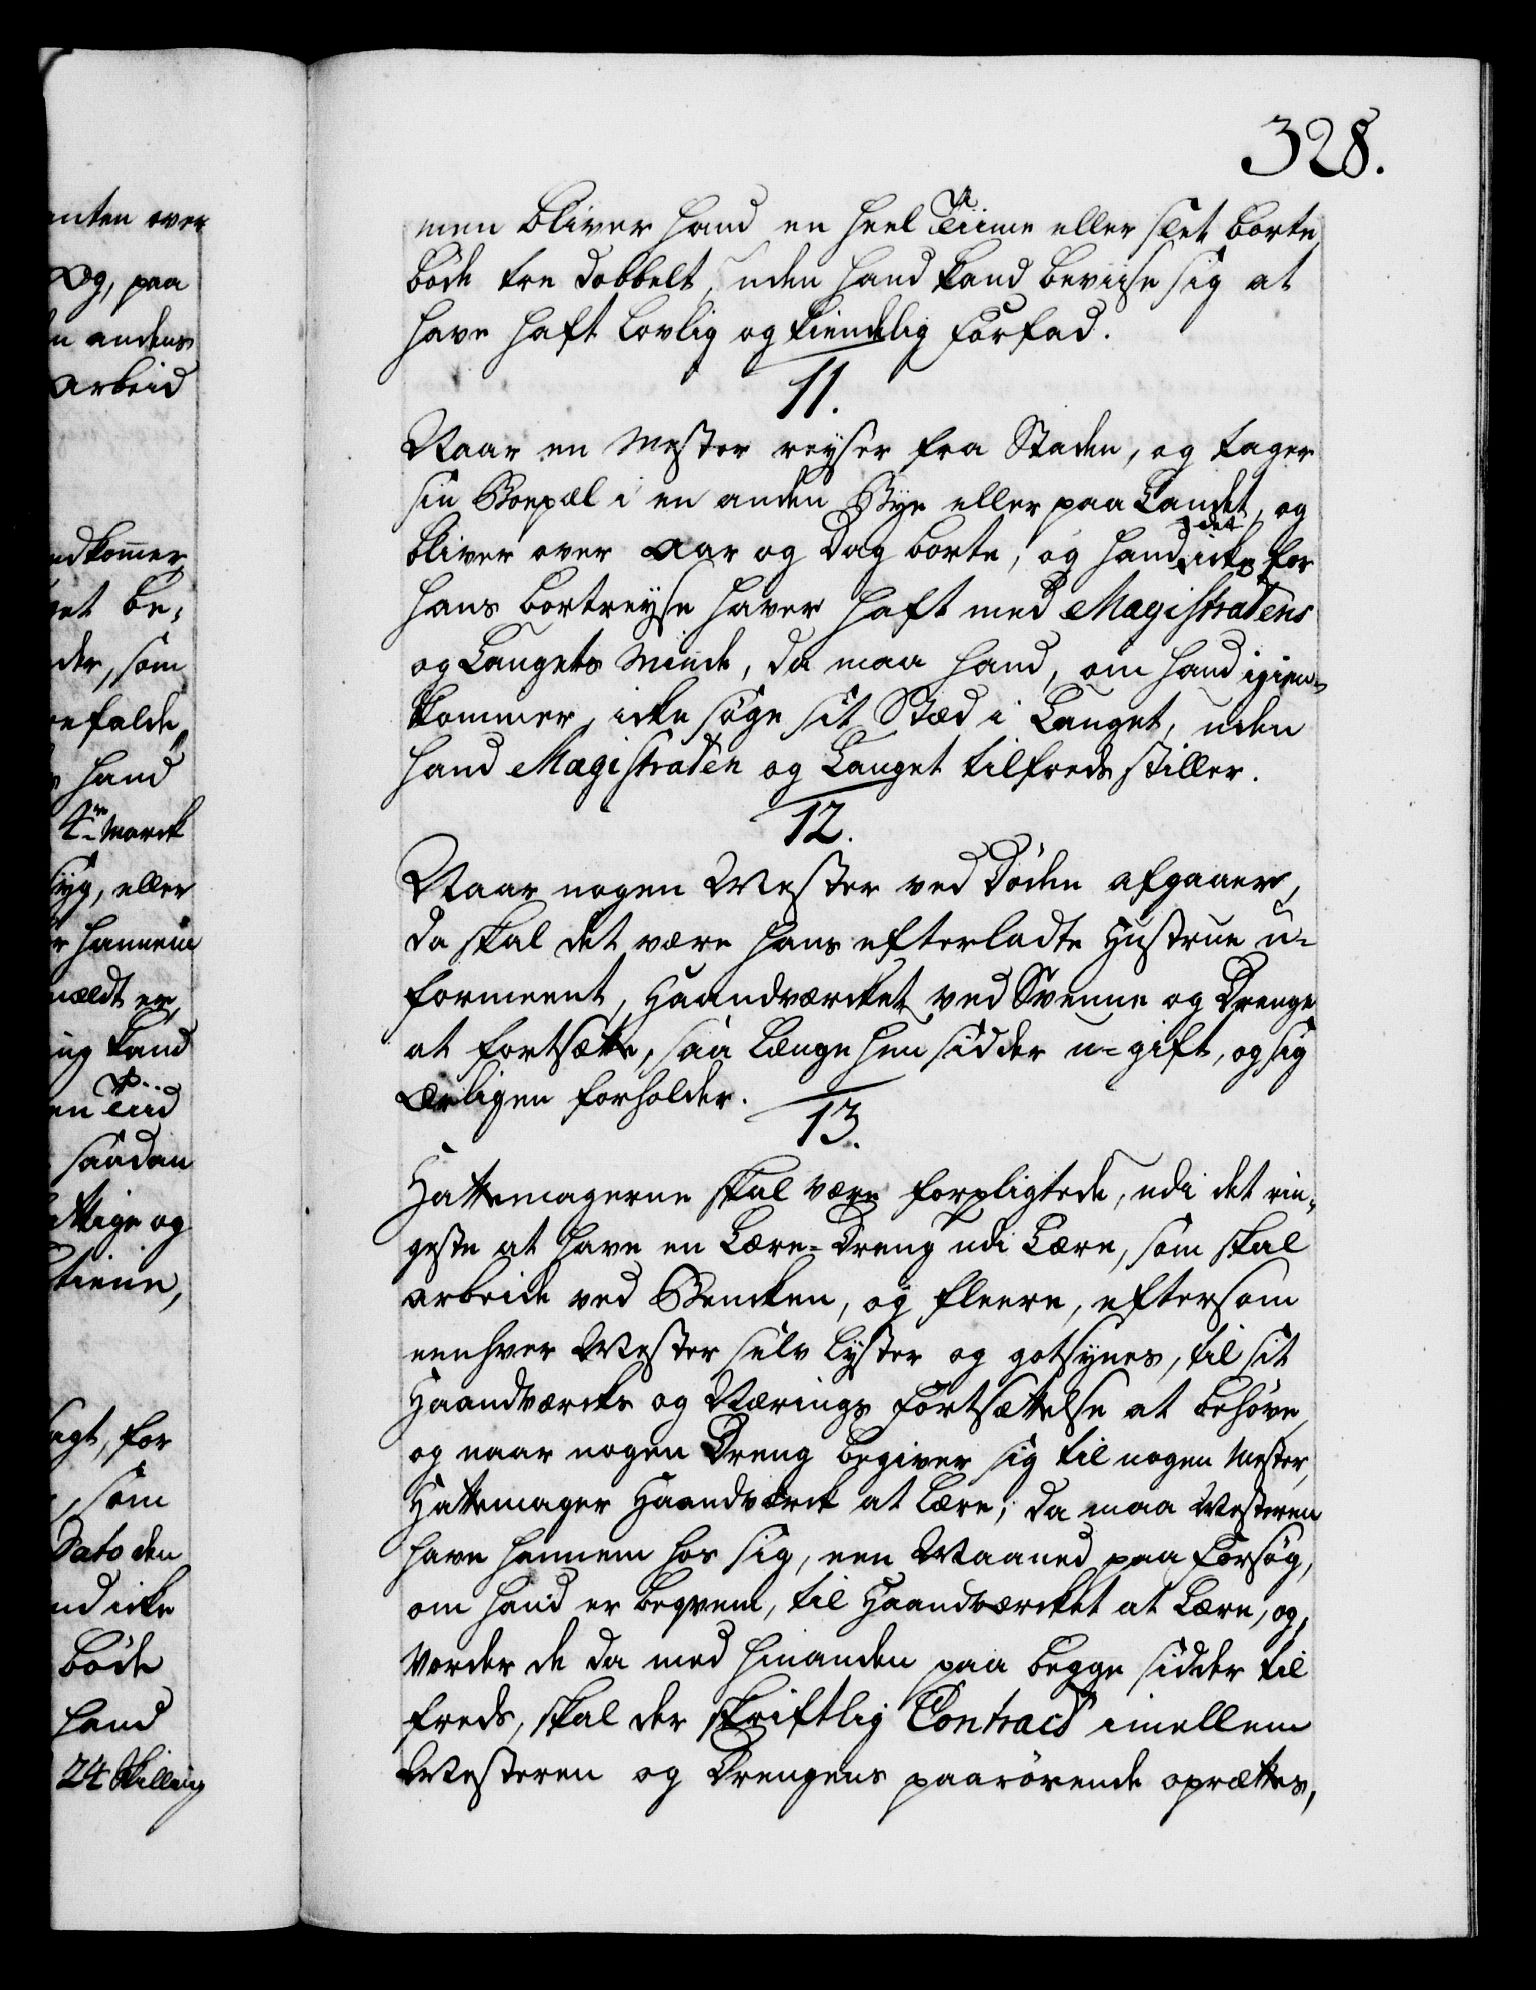 328.
men bliver hand en heel Tiime eller slet borte
bøde tredobbelt, uden hand kand beviise sig at
have haft lovlig og kiendelig Forfald.
11.
Naar en Mester reyser fra Staden, og tager
sin Boepæl i en anden Bye eller paa Landet, og
bliver over Aar og Dag borte, og hand det icke for
hans bortreyse haver haft med Magistratens
og Laugets Minde, da maa hand, om hand igien-
kommer, icke søge sit Stæd i Lauget, uden
hand Magistraten og Lauget tilfreds stiller.
12.
Naar nogen Mester ved Døden afgaaer,
da skal det være hans efterladte Hustrue u-
formeent, Haandværcket ved Svenne og Drenge
at fortsætte, saa længe hun sidder u-gift, og sig
ærligen forholder.
13.
Hattemagerne skal være forpligtede, udi det rin-
geste at have en Lære-Dreng udi Lære, som skal
arbeide ved Bencken, og fleere, eftersom
eenhver Mester selv lyster og got synes, til sit
Haandværcks og Nærings Fortsættelse at behøve,
og naar nogen Dreng begiver sig til nogen Mester,
Hattemager Haandværck at lære, da maa Mesteren
have hannem hos sig, een Maaned paa Forsøg,
om hand er beqvem, til Haandværcket at lære, og,
vorder de da med hinanden paa begge sidder til
freds, skal der skriftlig Contract imellem
Mesteren og Drengens paarørende oprættes,
enten over
Og, paa
n andens
arbeid
ndkom̅er
et be-
der, som
efalde
hand
4re Marck
syg, eller
r hannem
meldt er,
ng kand
en Tiid
saadan
ttige og
tiene,
agt, for
, som
Dato den
nd icke
bøde
hand
24 Skilling